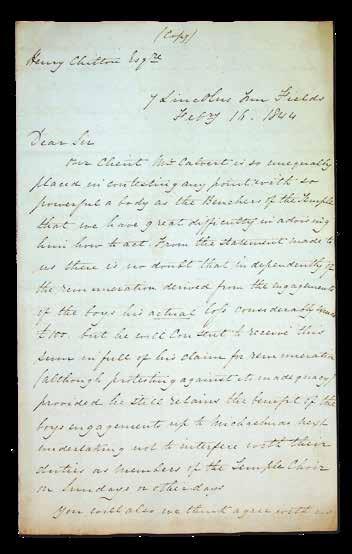 (Copy)
Henry Chitton Esqre
7 Lincolns Inn Fields
Feby 16. 1844
Dear Sir
Our Client Mr Calvert is so unequally
placed in contesting any point with so
powerful a body as the Benchers of the Temple
that we have great difficulty in advising
him how to act From the statement made to
us there is no doubt that independently of
the remuneration derived from the engagements
of the boys his actual loss considerably
£100. but he will consent to receive this
sum in full of his claim for remuneration
(although protesting against its inadequacy)
provided he still retains the benefit of the
boys engagement up to Michaelmas next
undertaking not to interfere with their
duties as members of the Temple Choir
on Sundays or other days
You will also we think agree with us